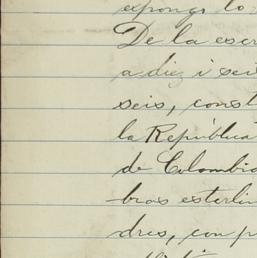 expongo lo
De la escr
a diez i seis
seis, const
la República
de Colombia
bras esterlin
dres, con p